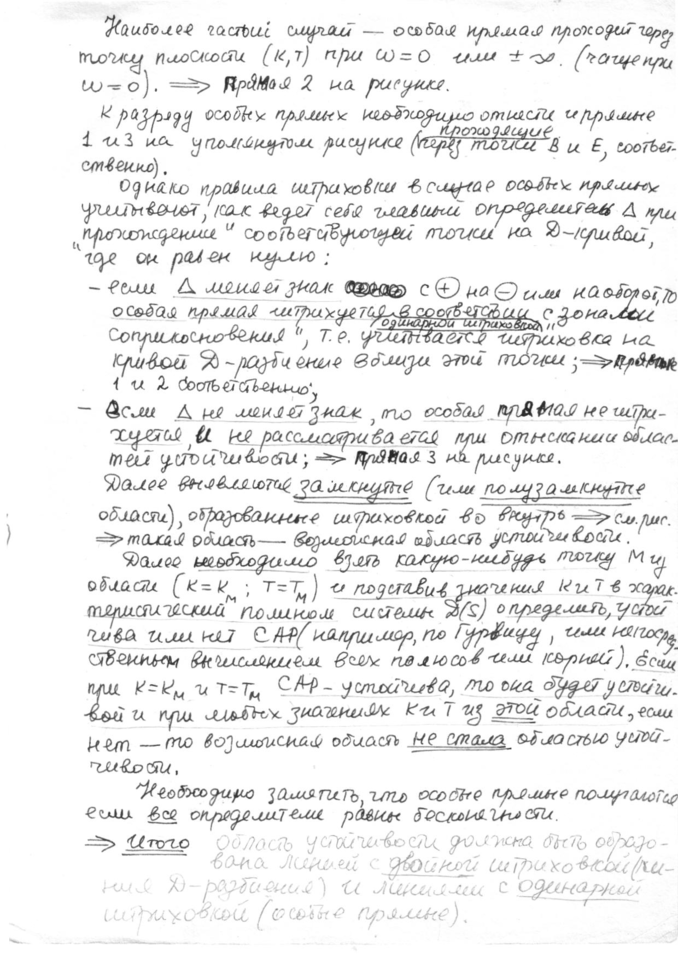 Наиболее частый случай — особая прямая проходит через
точку плоскости (К,Т) при ω=0 или ±∞. (чаще при
ω=0). ⟹ прямая 2 на рисунке.
К разряду особых прямых необходимо отнести и прямые
1 и 3 на упомянутом рисунке (проходящие через точки В и Е, соответ-
ственно).
Однако правила штриховки в случае особых прямых
учитывают, как ведет себя главный определитель Δ при
"прохождении" соответствующей точки на Д-кривой,
где он равен нулю:
– если Δ меняет знак с ⊕ на ⊖ или наоборот, то
особая прямая штрихуется в соответствии с "зонами
соприкосновения" одинарной штриховкой, т.е. учитывается штриховка на
кривой Д-разбиение вблизи этой точки; ⟹ прямые
1 и 2 соответственно;
– Если Δ не меняет знак, то особая прямая не штри-
хуется и не рассматривается при отыскании облас-
тей устойчивости; ⟹ прямая 3 на рисунке.
Далее выявляются замкнутые (или полузамкнутые
области), образованные штриховкой во внутрь ⟹ см. рис.
⟹ такая область — возможная область устойчивости.
Далее необходимо взять какую-нибудь точку М из
области (К=Kм ; Т=Tм) и подставив значения К и Т в харак-
теристический полином системы D(s) определить, устой
чива или нет САР (например, по Гурвицу, или непосред-
ственным вычислением всех полюсов или корней). Если
при К=Kм и Т=Tм САР – устойчива, то она будет устойчи-
вой и при любых значениях К и Т из этой области, если
нет — то возможная область не стала областью устой-
чивости.
Необходимо заметить, что особые прямые получаются
если все определители равны бесконечности.
⟹ Итого область устойчивости должна быть образо-
вана линией с двойной штриховкой (ли-
ния Д-разбиения) и линиями с одинарной
штриховкой (особые прямые).
)